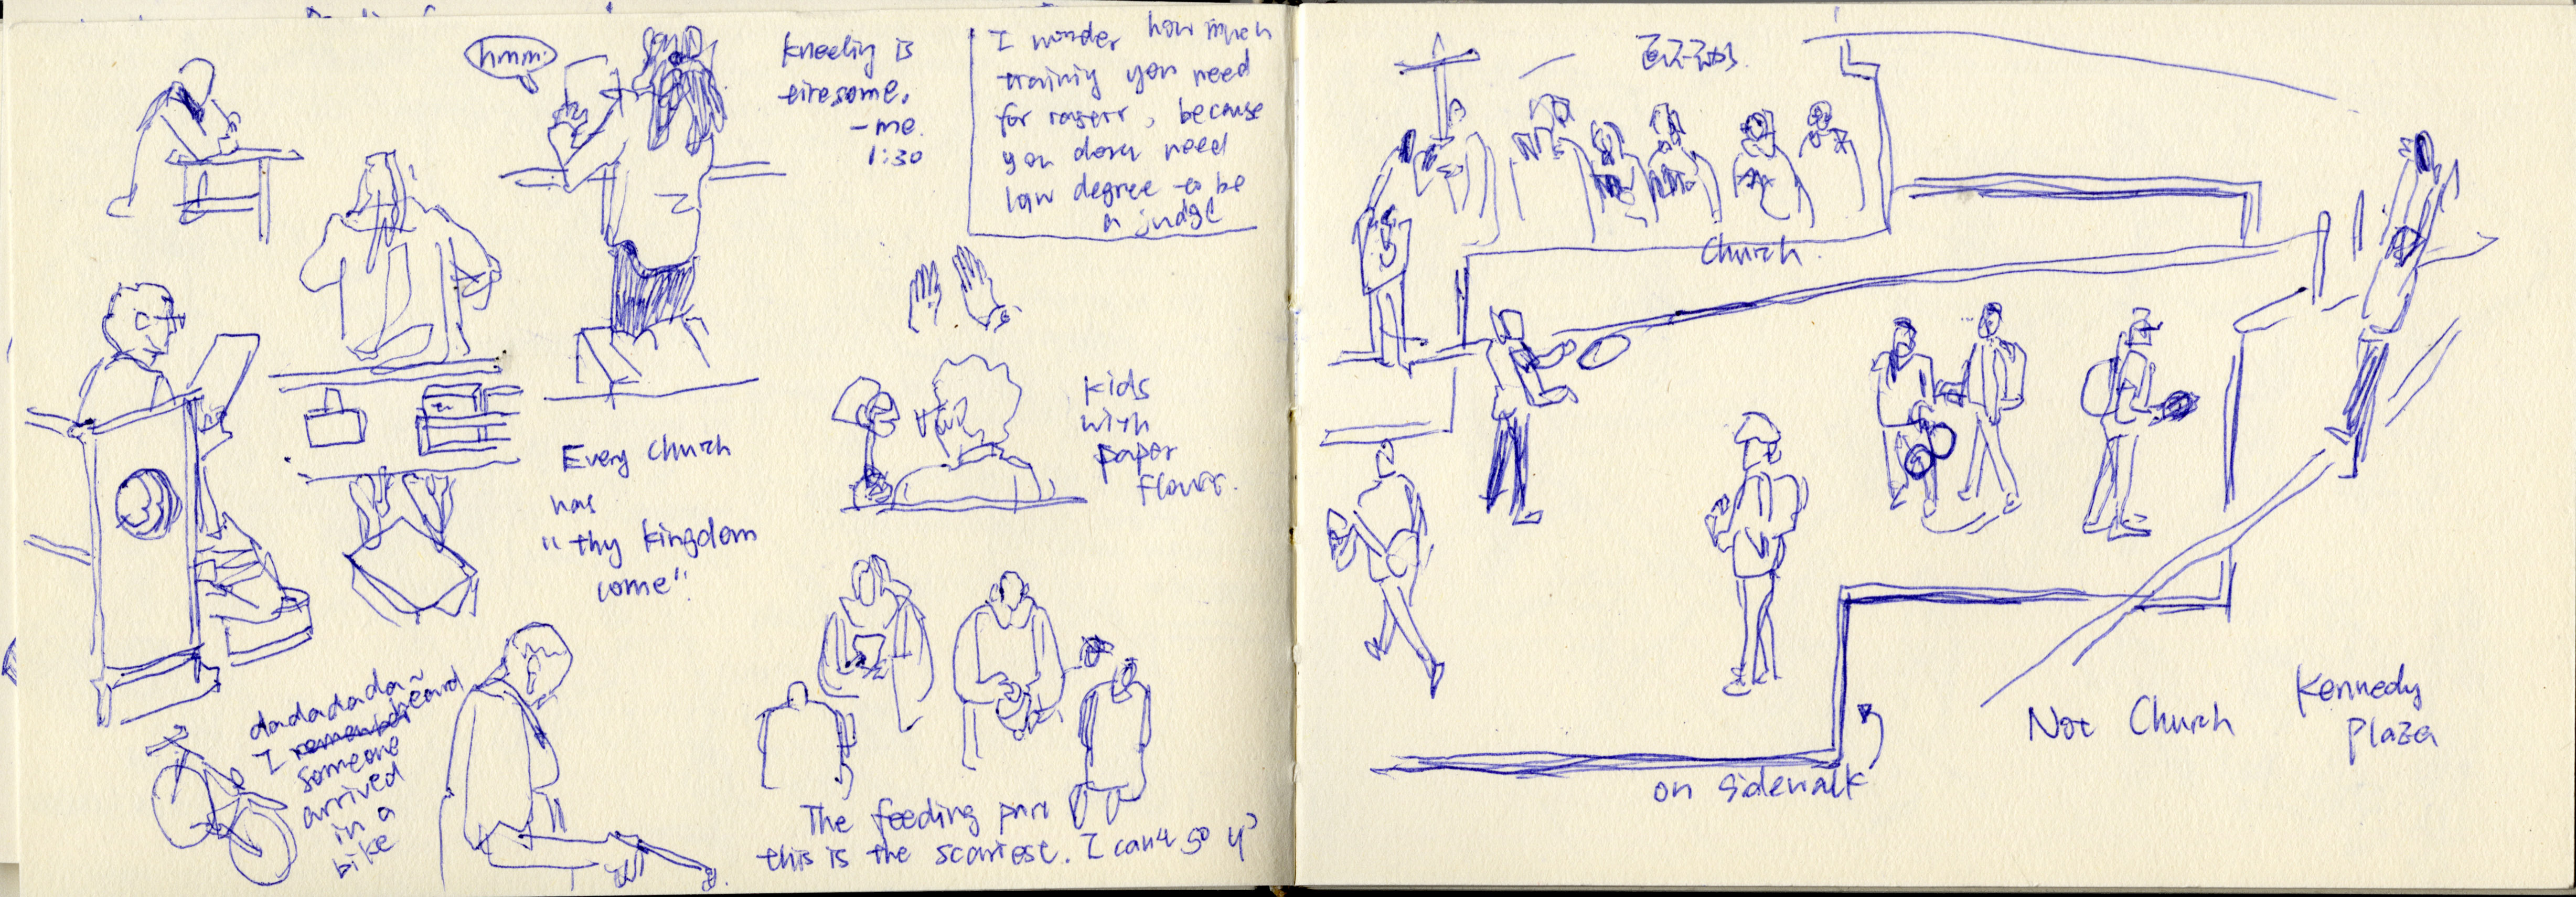 hmm.
kneeling is
tiresome.
- me.
1:30
I wonder how much
training you need
for
, because
you don't need
law degree to be
a judge
Every church
has
"thy kingdom
come".
kids
with
paper
flower.
dadadada~
I remember heard
someone
arrived
in a
bike
The feeding part
this is the scariest. I can't go up
Church.
on sidewalk
Not Church
Kennedy
Plaza